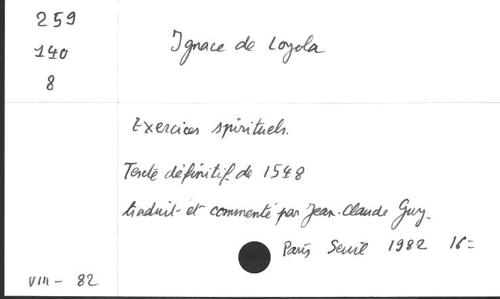 259
140
8
Ignace de Loyola
Exercices spirituels.
Texte définitif de 1548
traduit et commenté par Jean-Claude Guy.
Paris Seuil 1982 16=
VIII - 82